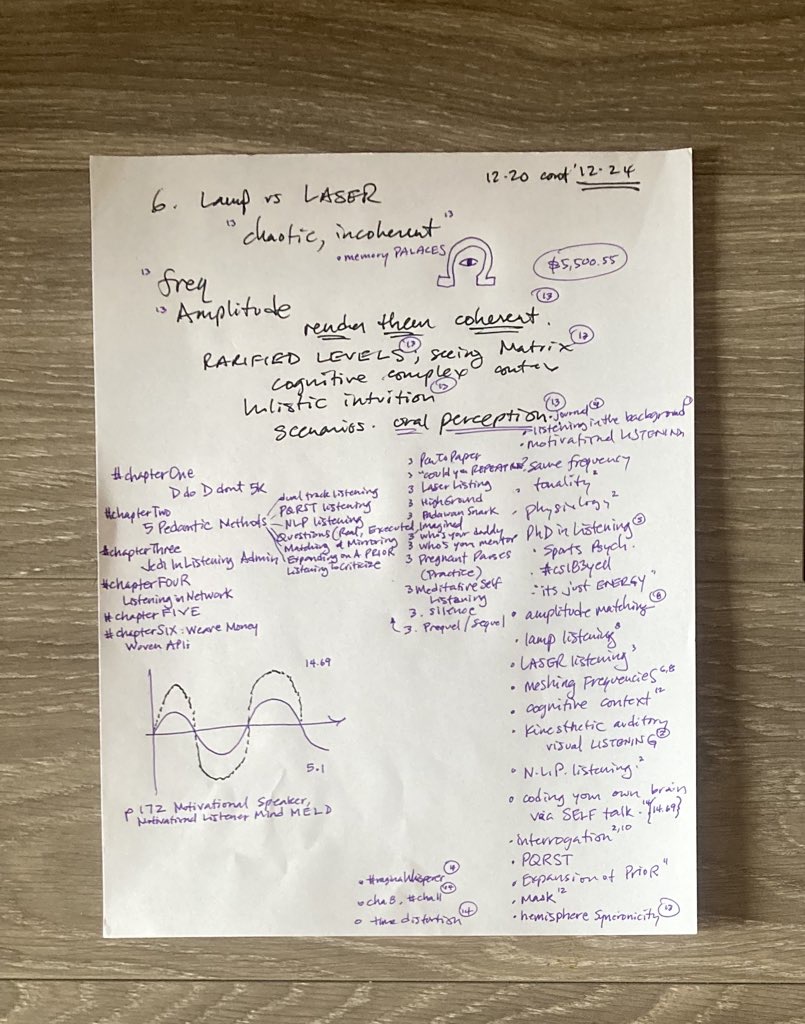 12.20 cont' 12.24
6. Lamp vs LASER
"13 chaotic, incoherent" 13
• memory PALACES
$5,500.55
13 freq
13 Amplitude
render them coherent. 13
RARIFIED LEVELS; 13 seeing Matrix 12
cognitive complex contex
holistic intuition 12
scenarios. oral perception. 13
#chapterOne
D do D dont 5K
#chapter Two
5 Pedantic Methods
dual track listening
PQRST listening
NLP listening
Questions (Real, Executed, Imagined
Matching & Mirroring
Expanding on A PRIOR
Listening to Criticize
#chapter Three
Jedi In Listening Admin
#chapter FOUR
Listening in Network
#chapter FIVE
#chapter SIX: We are Money
Woven
14.69
5.1
p 172 Motivational Speaker,
Motivational Listener Mind MELD
3 Pen To Paper
3 "could you REPEAT
3 Laser Listing
3 High Ground
3 Padawan Snark
3 who's your daddy
3 who's your mentor
3 Pregnant Pauses
(Practice)
3 Meditative Self
Listening
3. silence
3. Prequel/Sequel
• #reginaWhisperer 14
• cha 8, #cha11 14
• time distortion 14
• Journal 4
• listening in the background
• motivational LISTENING
same frequency
tonality 2
physiology 2
PhD in Listening 3
• Sports Psych.
• #csIB3yell
• "its just ENERGY"
• amplitude matching 6
• lamp listening 8
• LASER listening 3
• meshing Frequencies 6,8
• cognitive context 12
• Kinesthetic auditory
visual LISTENING 2
• N.L.P. listening. 2
• coding your own brain
via SELF talk. 14 {14.69}
• interrogation 2,10
• PQRST
• Expansion of Prior 11
• Mask 12
• hemisphere Syncronicity 12